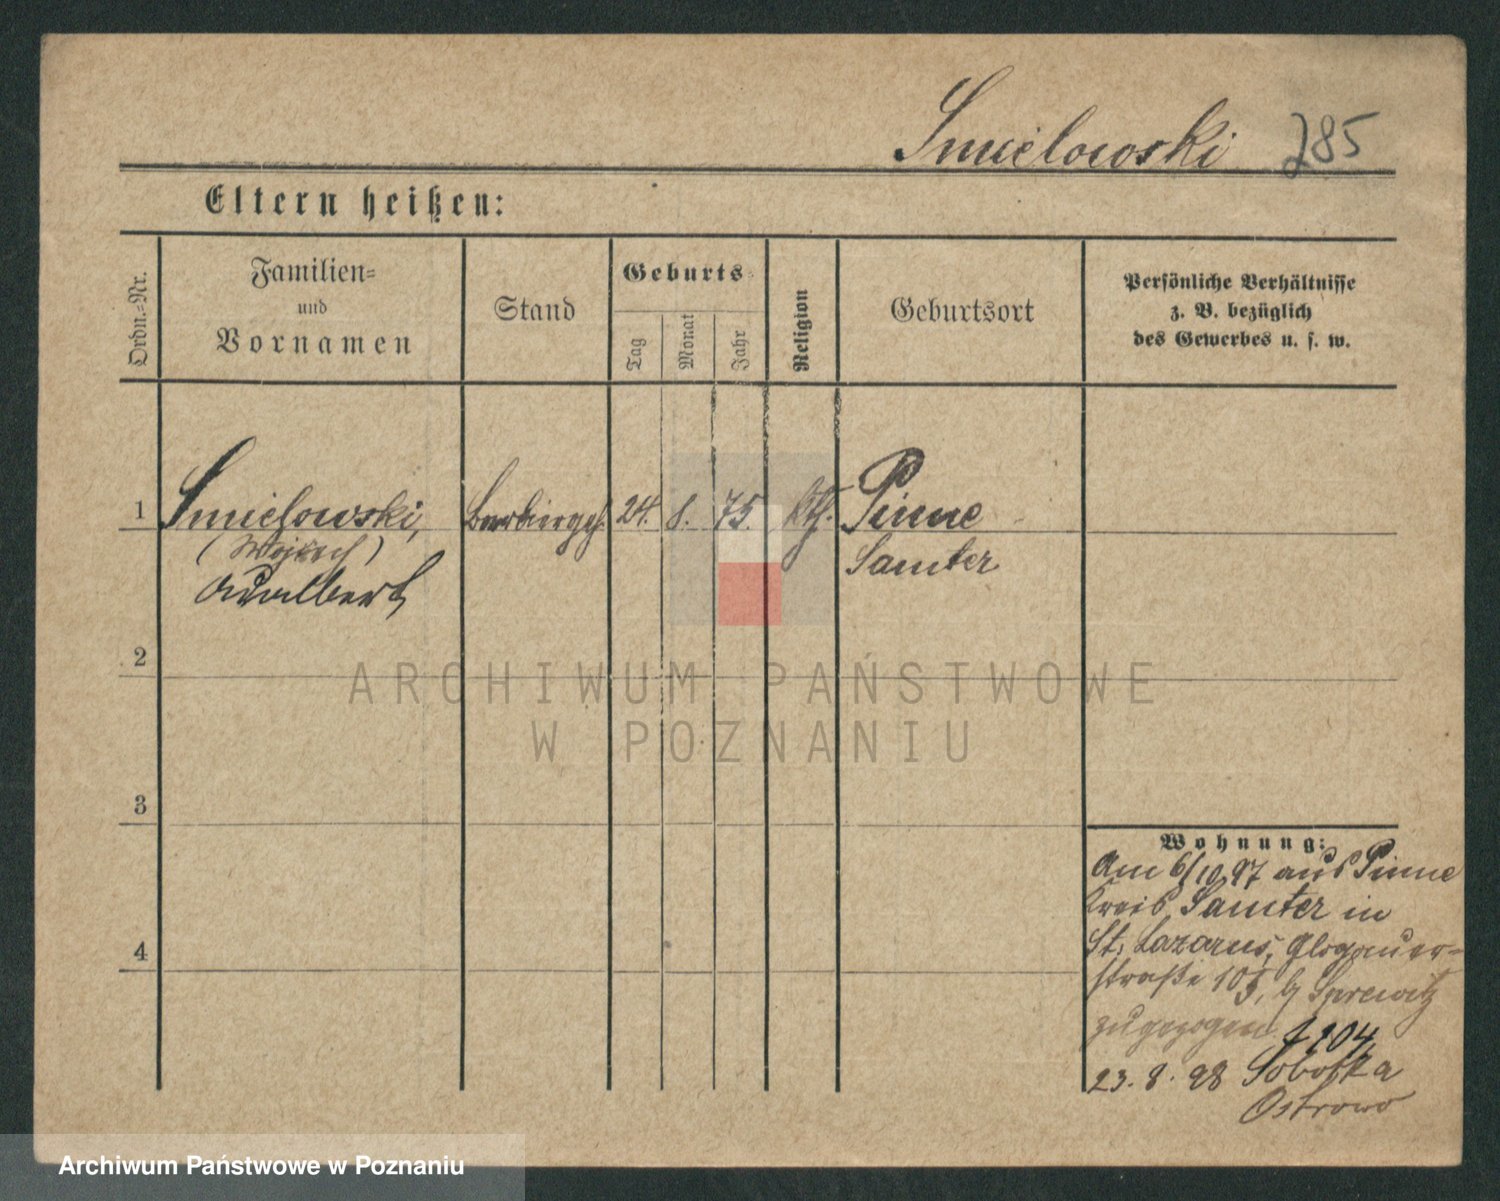 Smielowski 285
Eltern heißen:
Ordn.-Nr.
Familien-
und
Vornamen
Stand
Geburts-
Tag
Monat
Jahr
Religion
Geburtsort
Persönliche Verhältnisse
z. B. bezüglich
des Gewerbes u. s. w.
1 Smielowski, Barbiergeh. 24. 8. 75. kth. Pinne
Samter
Adalbert
2
ARCHIWUM PAŃSTWOWE
W POZNANIU
3
4
Wohnung:
Am 6/10 97 aus Pinne
Kreis Samter in
St. Lazarus, Glogauer-
straße 103, b/
zugezogen 1104
23. 8. 98 Sobotka
Ostrowo
Archiwum Państwowe w Poznaniu